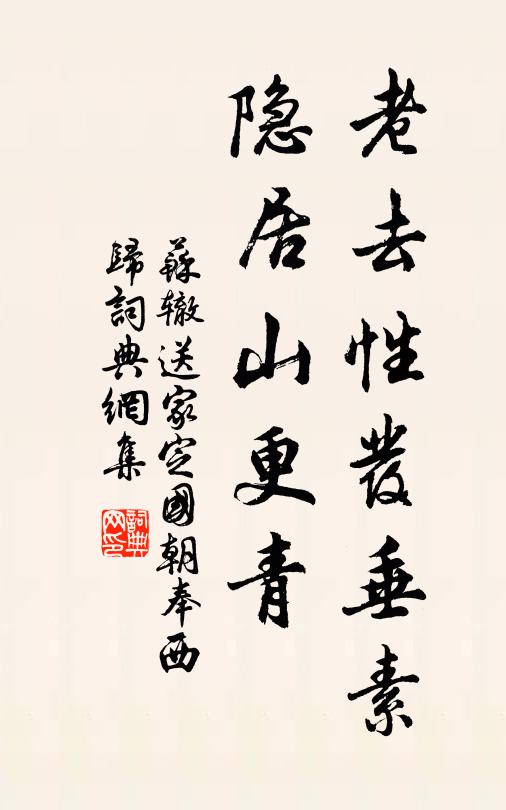 老去性發垂素
隐居山更青
蘇轍送家定國朝奉西
歸詞典網集
詞典网印